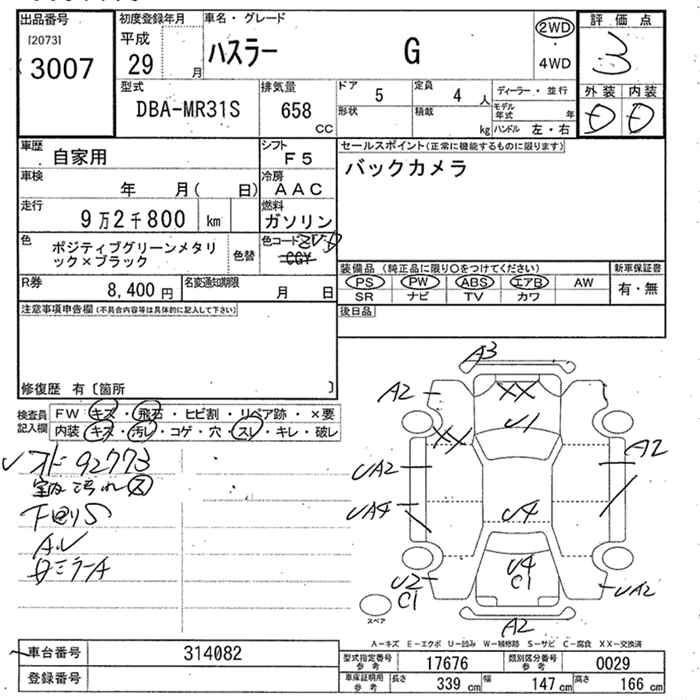 出品番号 初度登録年月 車名・グレード 2WD 評価点
[2073] 平成 ハスラー G ・ 3
3007 29 月 4WD
型式 排気量 ドア 5 定員 4 人 ディーラー・並行 外装 内装
DBA-MR31S 658 cc 形状 積載 kg モデル年式 年 D D
ハンドル 左・右
車歴 自家用 シフト F5 セールスポイント(正常に機能するものに限ります)
車検 年 月( 日) 冷房 AAC バックカメラ
走行 9万2千800 km 燃料 ガソリン
色 ポジティブグリーンメタリ 色替 色コード ZVD
ック×ブラック CGY
装備品(純正品に限り○をつけてください) 新車保証書
R券 8,400円 名変通知期限 月 日 PS PW ABS エアB AW 有・無
SR ナビ TV カワ
注意事項申告欄(不具合内容等は具体的に記入して下さい) 後日品
修復歴 有〔箇所 〕
検査員 FW キズ・飛石・ヒビ割・リペア跡・×要
記入欄 内装 キズ・汚レ・コゲ・穴・スレ・キレ・破レ
オド92773
室内 汚れ ス
下回りS
AW
ミラーA
A3
A2 XX
U1
XX A2
UA2
UA4 U4
U4
U2 C1 UA2
C1
スペア A2
A-キズ E-エクボ U-凹み W-補修跡 S-サビ C-腐食 XX-交換済
車台番号 314082 型式指定番号 参考 17676 類別区分番号 参考 0029
登録番号 車庫証明用 参考 長さ 339 cm 幅 147 cm 高さ 166 cm